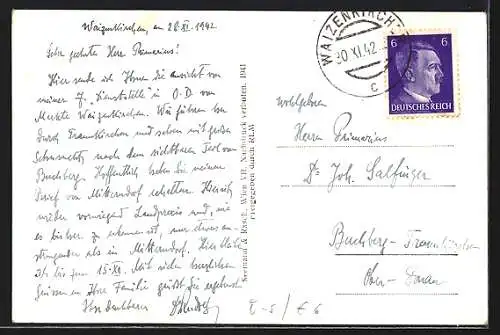 Waizenkirchen, am 28.XI.1942
Sehr geehrter Herr Primarius!
Hier sende ich Ihnen die Ansicht von
meiner "Dienststelle" in O.-D. von
Markte Waizenkirchen. Wir fuhren
durch Frankirchen und sahen mit großer
Sehnsucht nach dem sichtbaren Teil von
Buchberg. Hoffentlich haben Sie meinen
Brief von Mitterndorf erhalten. Hier ist
wieder vorwiegend Landpraxis und, wie
es bisher zu erkennen ist, nur etwas an-
strengender als in Mitterndorf. Hier bleibe
ich bis zum 15.XII. Mit vielen herzlichen
Grüssen an Ihre Familie grüßt Sie ergebenst
Ihr dankbarer
Seemann & Rasch, Wien VII. Nachdruck verboten. 1941
Freigegeben durch RLM
WAIZENKIRCH
30.XI.42
c
6 6
DEUTSCHES REICH
Wohlgeboren
Herrn Primarius
Dr. Joh. Salfinger
Buchberg-Traunkirchen
Ober-Donau
E-5/€6